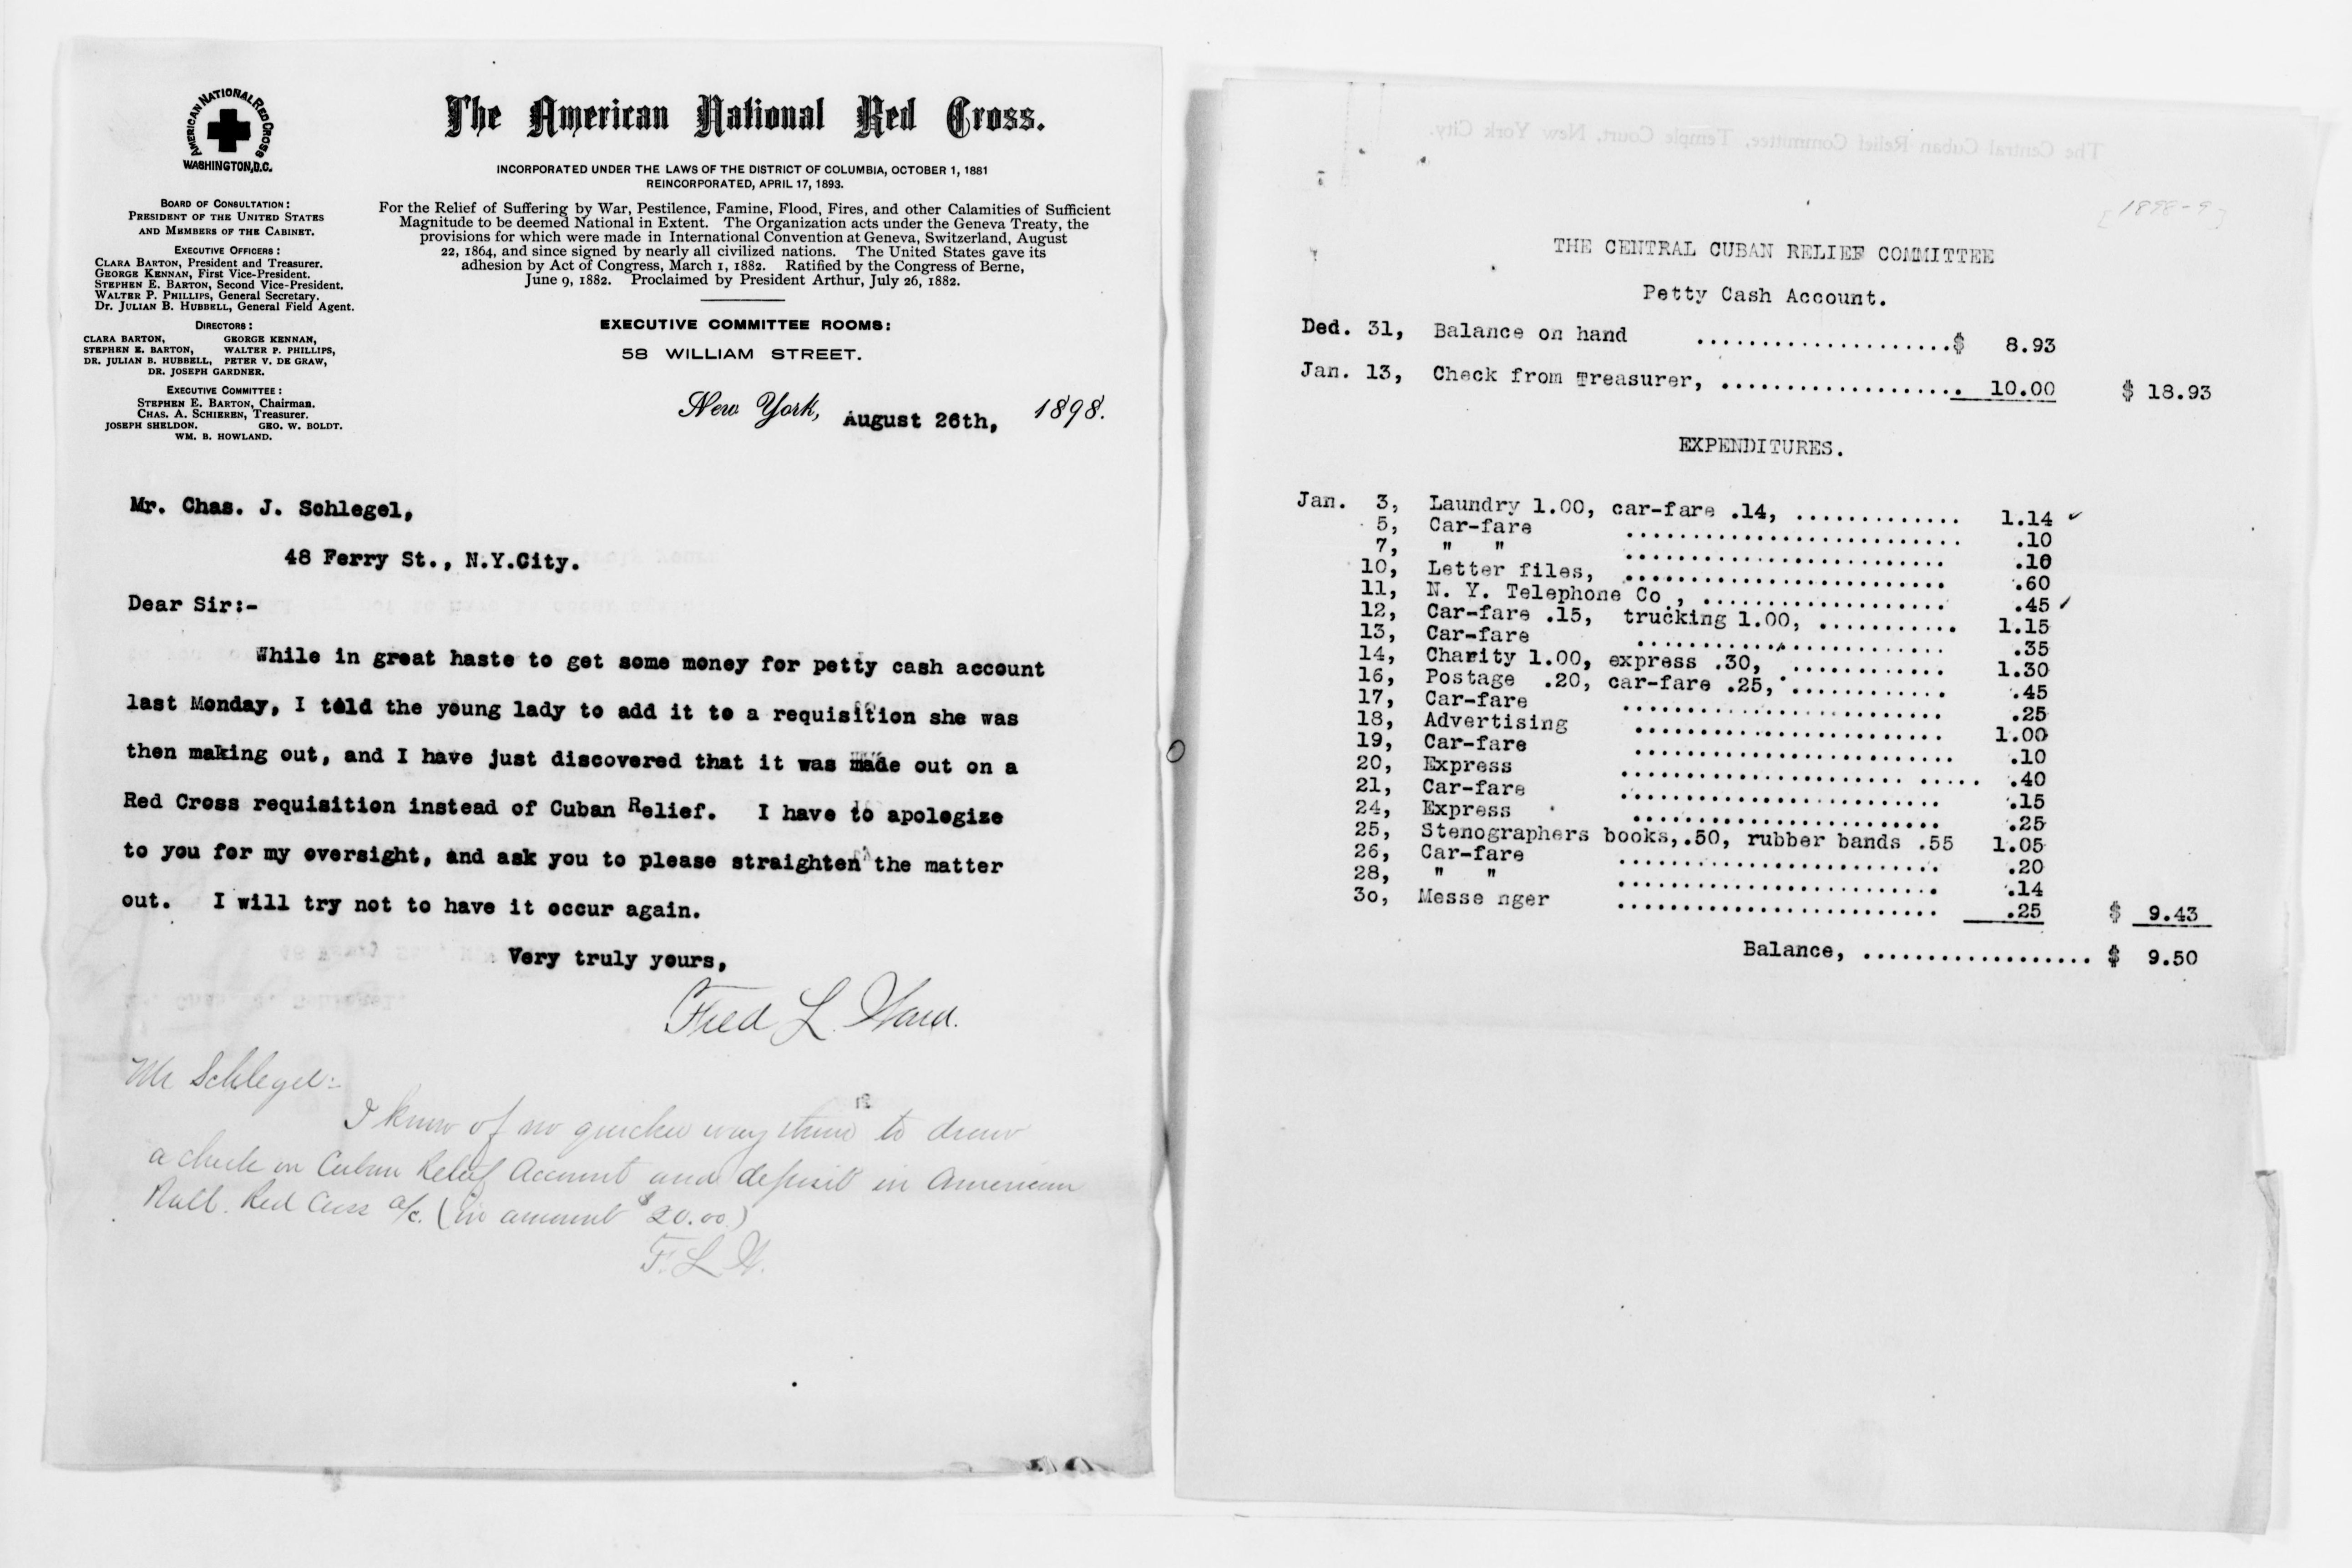 AMERICAN NATIONAL RED CROSS
WASHINGTON, D.C.
The American National Red Cross.
INCORPORATED UNDER THE LAWS OF THE DISTRICT OF COLUMBIA, OCTOBER 1, 1881
REINCORPORATED, APRIL 17, 1893.
For the Relief of Suffering by War, Pestilence, Famine, Flood, Fires, and other Calamities of Sufficient
Magnitude to be deemed National in Extent. The Organization acts under the Geneva Treaty, the
provisions for which were made in International Convention at Geneva, Switzerland, August
22, 1864, and since signed by nearly all civilized nations. The United States gave its
adhesion by Act of Congress, March 1, 1882. Ratified by the Congress of Berne,
June 9, 1882. Proclaimed by President Arthur, July 26, 1882.
BOARD OF CONSULTATION:
PRESIDENT OF THE UNITED STATES
AND MEMBERS OF THE CABINET.
EXECUTIVE OFFICERS:
CLARA BARTON, President and Treasurer.
GEORGE KENNAN, First Vice-President.
STEPHEN E. BARTON, Second Vice-President.
WALTER P. PHILLIPS, General Secretary.
Dr. JULIAN B. HUBBELL, General Field Agent.
DIRECTORS:
CLARA BARTON, GEORGE KENNAN,
STEPHEN E. BARTON, WALTER P. PHILLIPS,
DR. JULIAN B. HUBBELL, PETER V. DE GRAW,
DR. JOSEPH GARDNER.
EXECUTIVE COMMITTEE:
STEPHEN E. BARTON, Chairman.
CHAS. A. SCHIEREN, Treasurer.
JOSEPH SHELDON. GEO. W. BOLDT.
WM. B. HOWLAND.
EXECUTIVE COMMITTEE ROOMS:
58 WILLIAM STREET.
New York, August 26th, 1898.
Mr. Chas. J. Schlegel,
48 Ferry St., N.Y.City.
Dear Sir:-
While in great haste to get some money for petty cash account
last Monday, I told the young lady to add it to a requisition she was
then making out, and I have just discovered that it was made out on a
Red Cross requisition instead of Cuban Relief. I have to apologize
to you for my oversight, and ask you to please straighten the matter
out. I will try not to have it occur again.
Very truly yours,
Fred L. Ward.
Mr Schlegel:-
I know of no quicker way than to draw
a check on Cuban Relief Account and deposit in American
Natl. Red Cross a/c. (in amount $20.00)
F. L. W.
The Central Cuban Relief Committee, Temple Court, New York City.
[1898-9]
THE CENTRAL CUBAN RELIEF COMMITTEE
Petty Cash Account.
Ded. 31, Balance on hand ....................$ 8.93
Jan. 13, Check from Treasurer, ................... 10.00 $ 18.93
EXPENDITURES.
Jan. 3, Laundry 1.00, car-fare .14, ............. 1.14 ✓
5, Car-fare .......................... .10
7, " " ......................... .10
10, Letter files, ......................... .60
11, N. Y. Telephone Co., ................... .45 ✓
12, Car-fare .15, trucking 1.00, ........... 1.15
13, Car-fare ........................ .35
14, Charity 1.00, express .30, ............ 1.30
16, Postage .20, car-fare .25, ............ .45
17, Car-fare ......................... .25
18, Advertising ........................ 1.00
19, Car-fare ......................... .10
20, Express ...................... ..... .40
21, Car-fare ......................... .15
24, Express ........................ .25
25, Stenographers books,.50, rubber bands .55 1.05
26, Car-fare ......................... .20
28, " " ......................... .14
30, Messe nger ......................... .25 $ 9.43
Balance, .................. $ 9.50